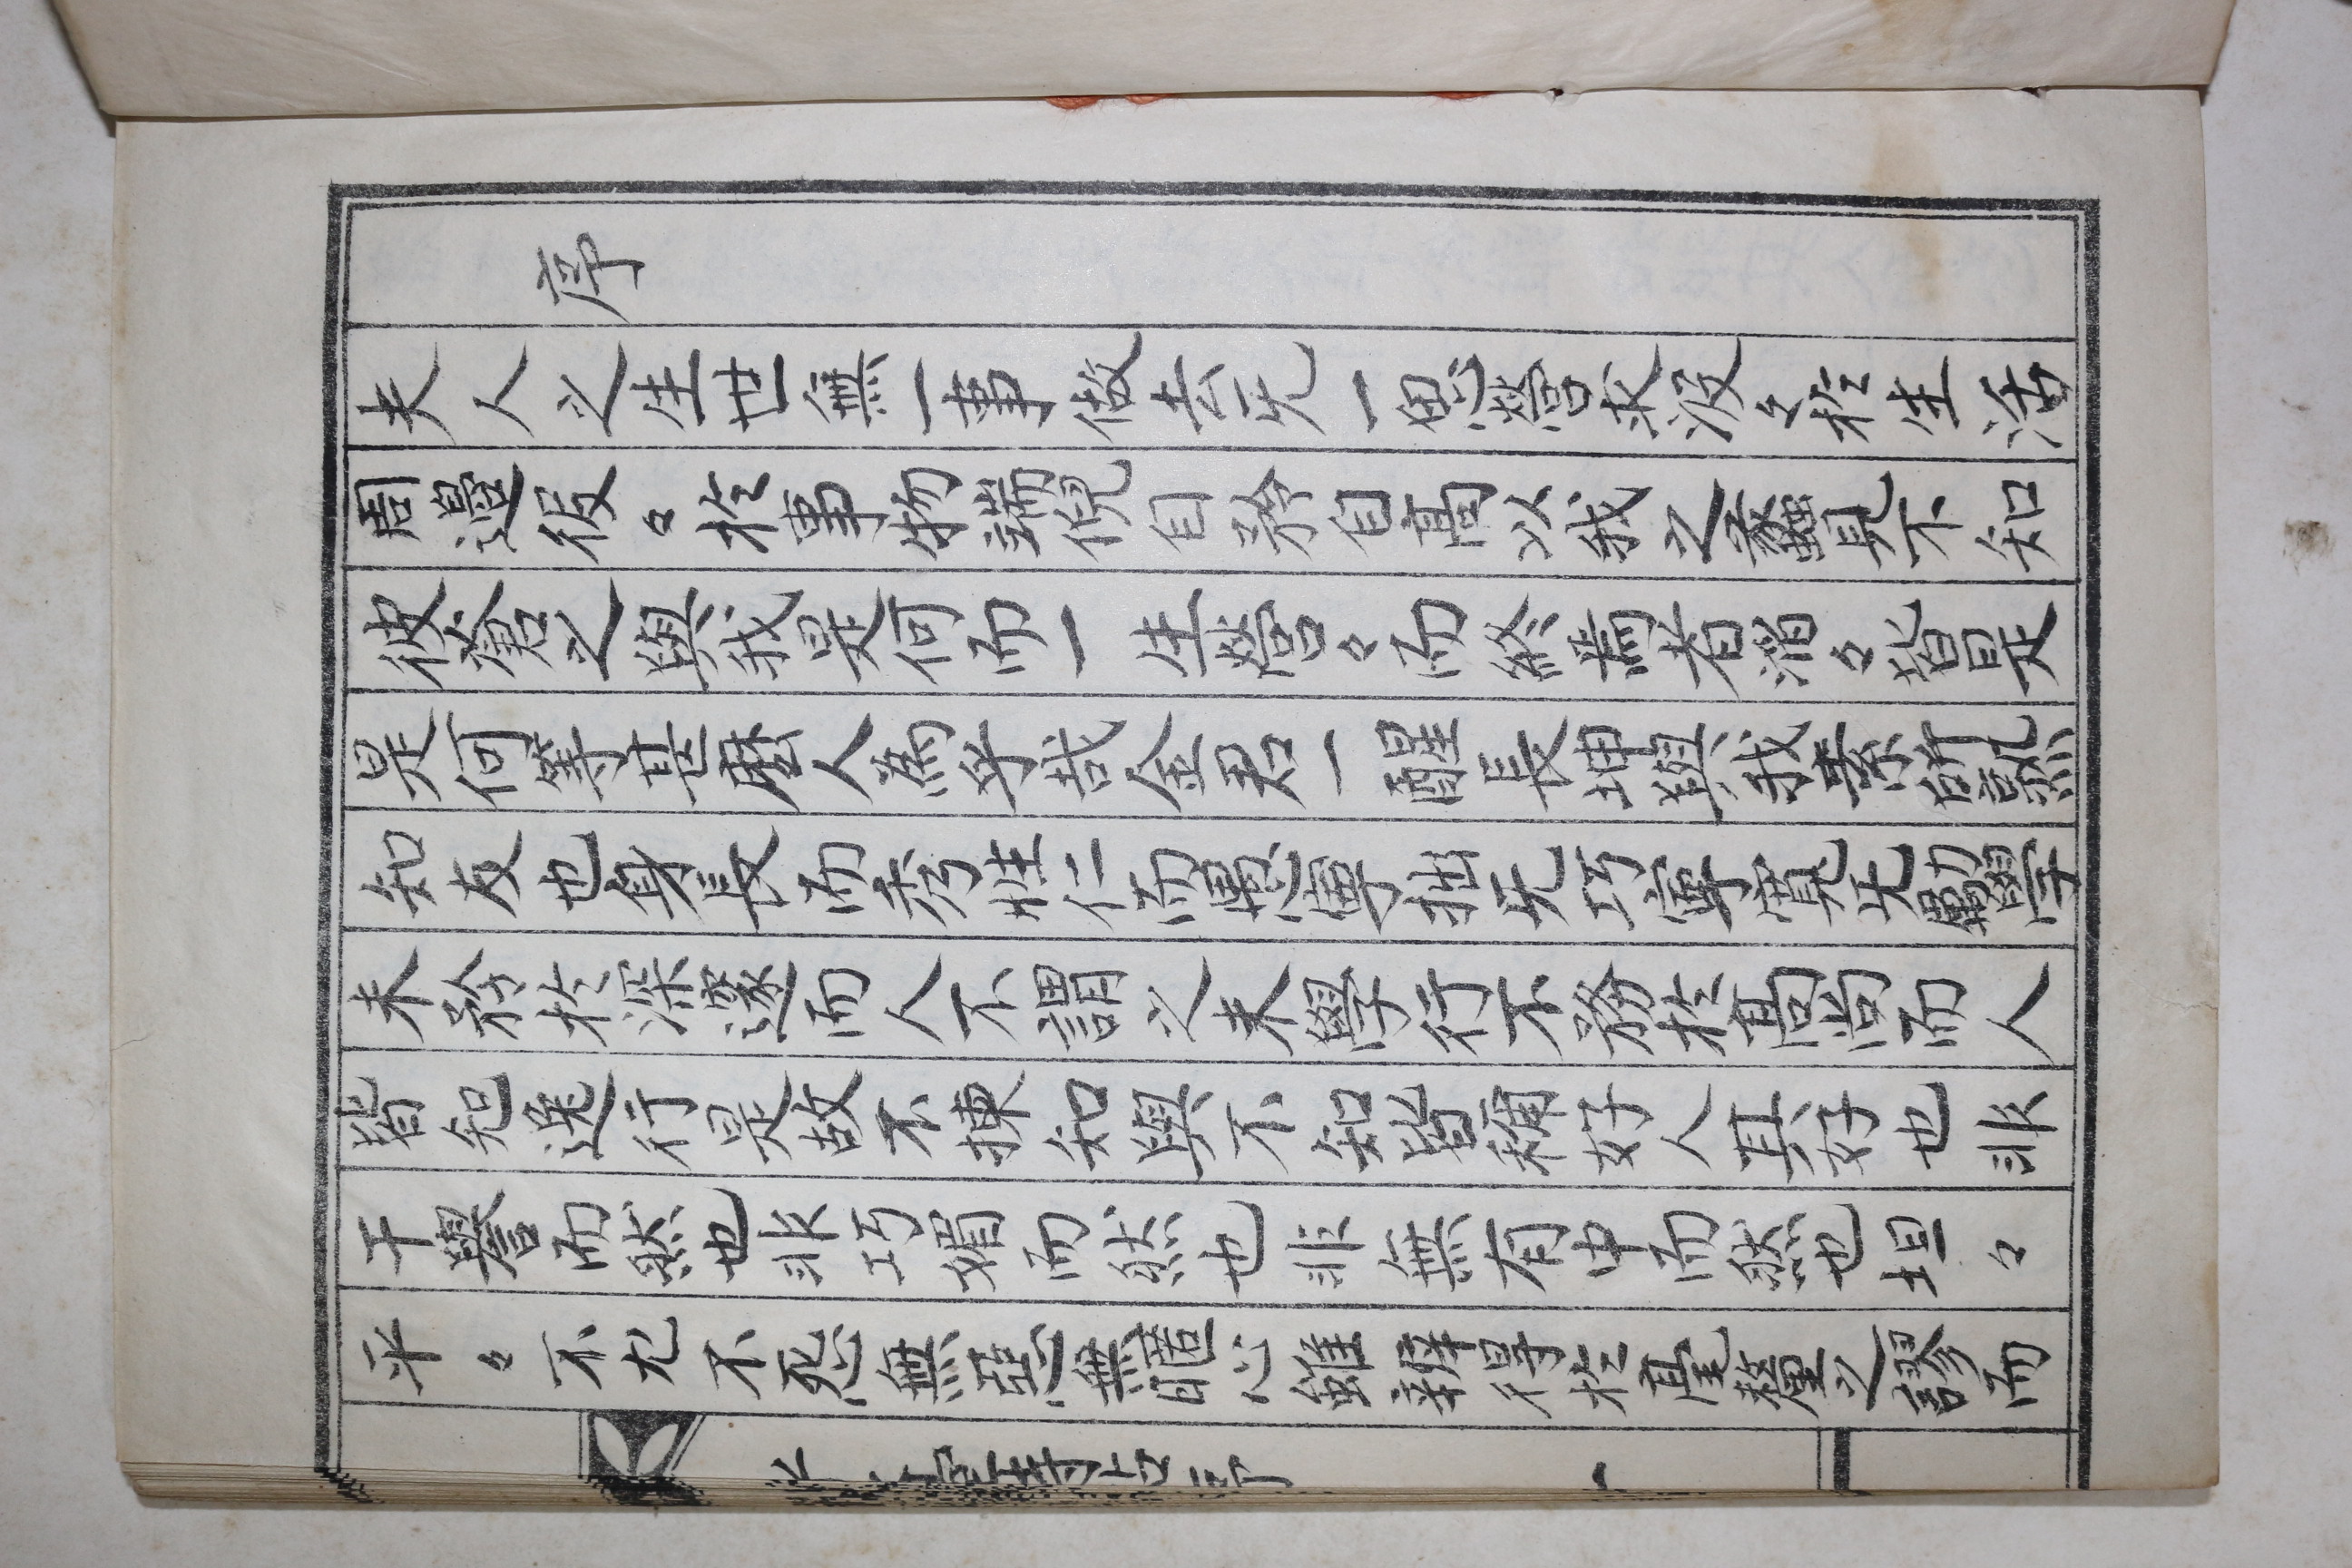 序
夫人之生世無一事做去旡一思營求汲々於生活
周邉役々於事物端倪自矜自高以我之蠡見不知
彼蒼之與我是何而一生營々而終焉者滔々皆是
是何等甚麽人為乎哉金君一醒長坤與我素所熟
知友也身長而秀性仁而愚寕拙旡巧寧寬旡勵學
未矜於深邃而人不謂之未學行不務於髙尚而人
皆知逸行是故不揀知與不知皆稱好人其好也非
干譽而然也非巧媚而然也非無有中而然也坦々
平々不尤不怨無惡無慝心雖辨得於毫釐之謬而